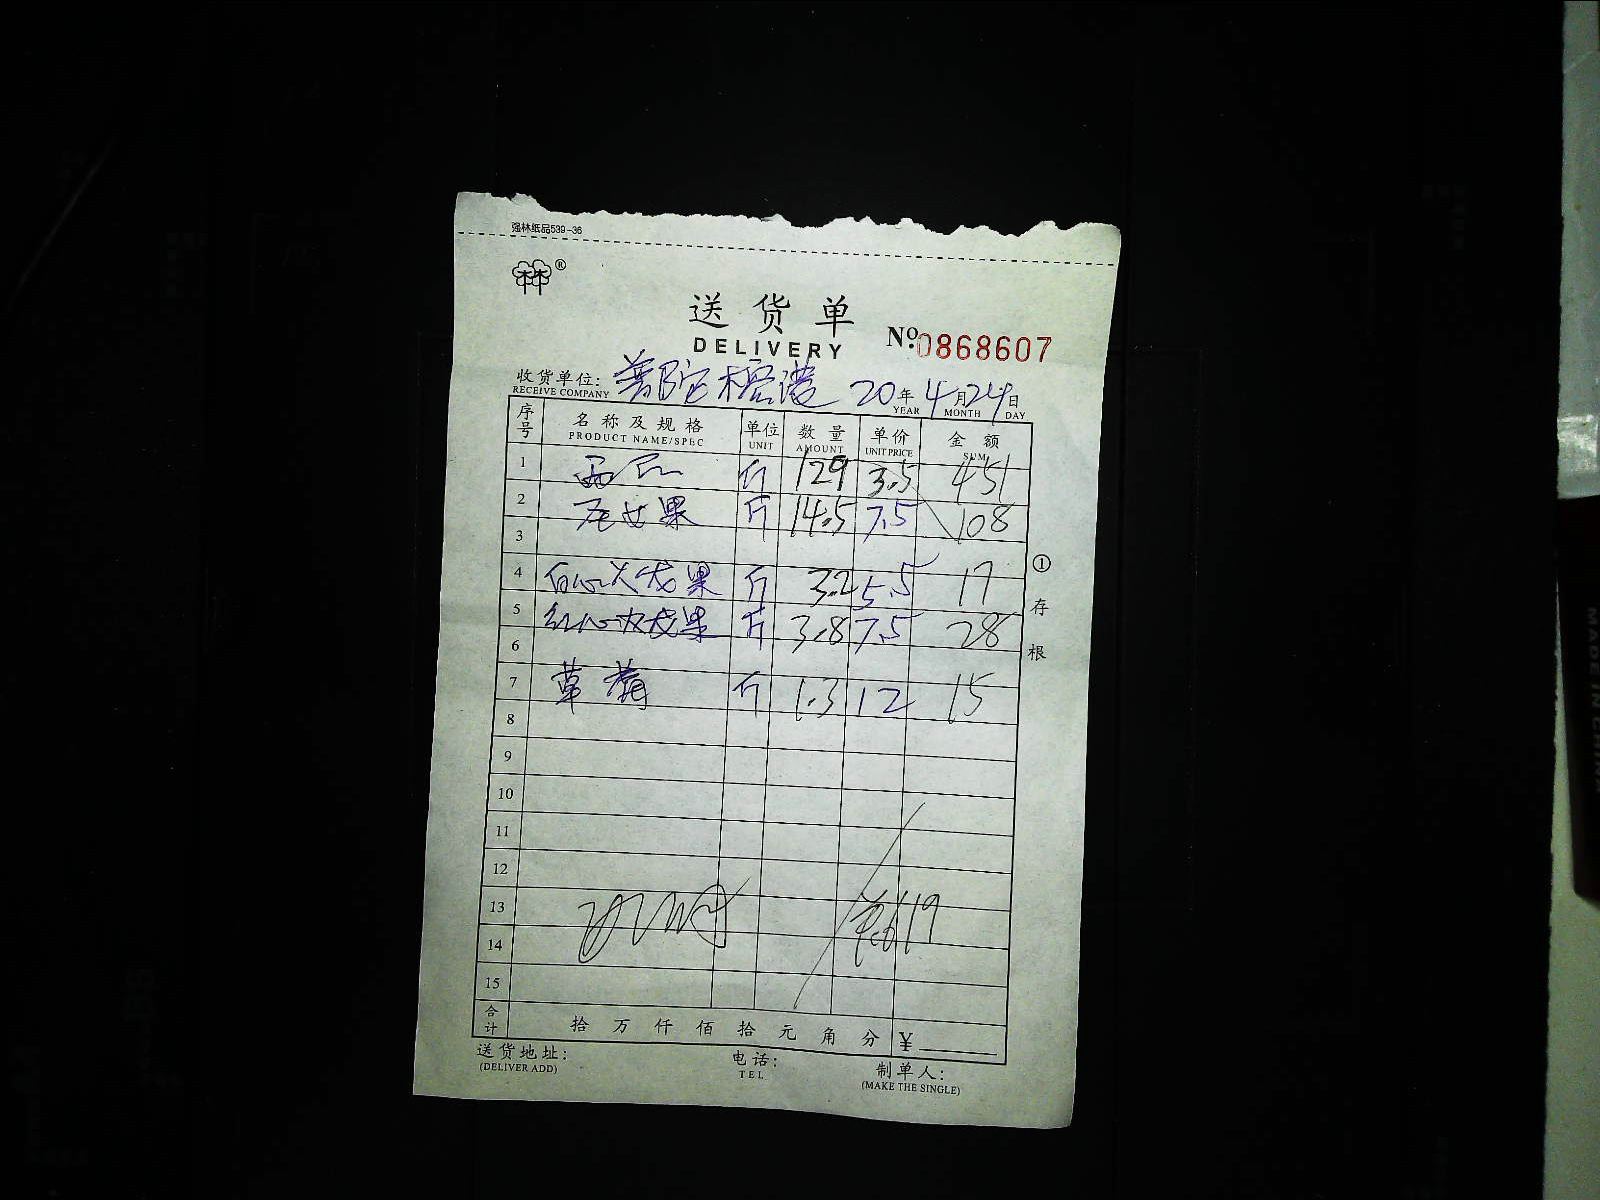 强林纸品539-36
林林®
送货单
DELIVERY
№:0868607
收货单位: 普陀 20年4月24日
RECEIVE COMPANY YEAR MONTH DAY
序号 名称及规格 单位 数量 单价 金额
PRODUCT NAME/SPEC UNIT AMOUNT UNIT PRICE SUM
1 西瓜 斤 129 3.5 451
2 果 斤 14.5 7.5 108
3
4 白心火龙果 斤 3.2 5.5 17
5 红心火龙果 斤 3.8 7.5 28
6
7 草莓 斤 1.3 12 15
8
9
10
11
12
13 619
14
15
合计 拾万仟佰拾元角分 ¥
送货地址: 电话: 制单人:
(DELIVER ADD) TEL (MAKE THE SINGLE)
①存根
MADE IN CHINA